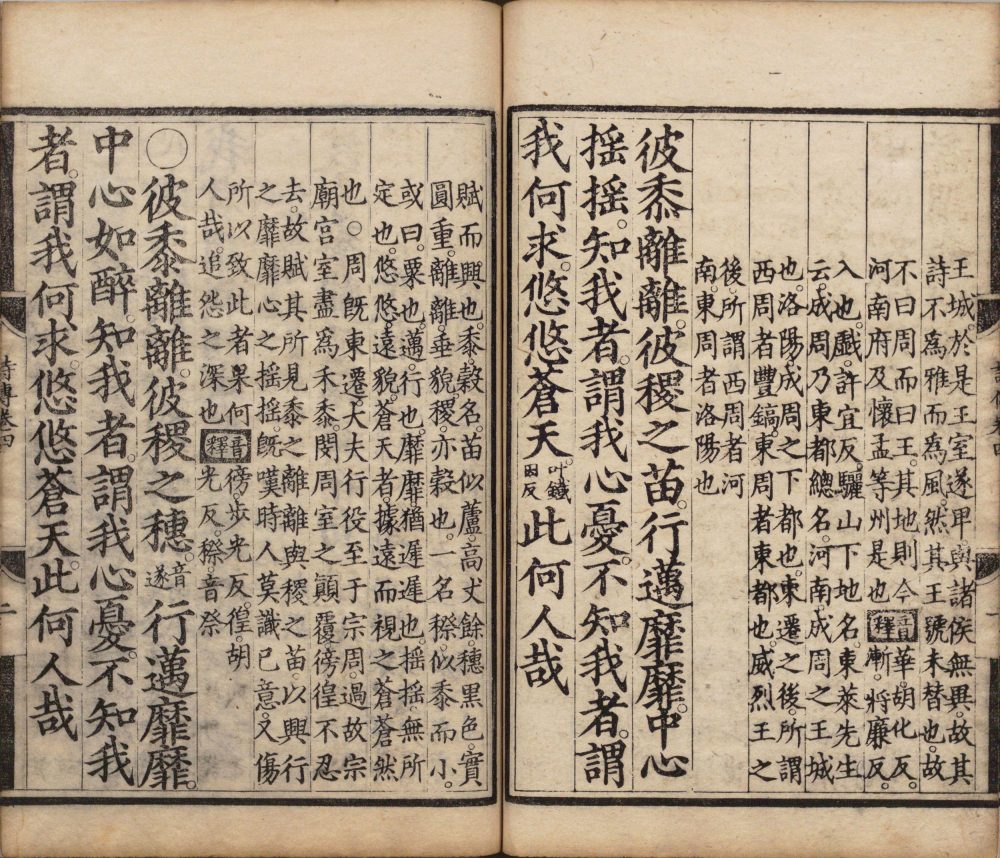 王城於是王室遂卑與諸侯無異故其
詩不爲雅而爲風然其王號未替也故
不曰周而曰王其地則今華胡化反
河南府及懷孟等州是也音釋漸將廉反
入也戲許宜反驪山下地名東萊先生
云成周乃東都總名河南成周之王城
也洛陽成周之下都也東遷之後所謂
西周者豐鎬東周者東都也威烈王之
後所謂西周者河
南東周者洛陽也
彼黍離離彼稷之苗行邁靡靡中心
搖搖知我者謂我心憂不知我者謂
我何求悠悠蒼天叶鐵因反此何人哉
賦而興也黍穀名苗似蘆高丈餘穗黑色實
圓重離離垂貌稷亦穀也一名穄似黍而小
或曰粟也邁行也靡靡猶遲遲也搖搖無所
定也悠悠遠貌蒼天者據遠而視之蒼蒼然
也○周旣東遷大夫行役至于宗周過故宗
廟宮室盡爲禾黍閔周室之顛覆徬徨不忍
去故賦其所見黍之離離與稷之苗以興行
之靡靡心之搖搖旣嘆時人莫識己意又傷
所以致此者果何
人哉追怨之深也
音釋徬步光反徨胡
光反穄音祭
○彼黍離離彼稷之穗音遂行邁靡靡
中心如醉知我者謂我心憂不知我
者謂我何求悠悠蒼天此何人哉
詩傳卷四
二